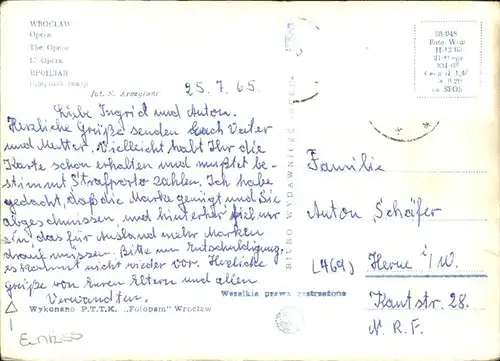 WROCŁAW
Opera
The Opera
L' Opéra
ВРОЦЛАВ
Оперный театр
fot. S. Arczyński
25. 7. 65.
Liebe Ingrid und Anton.
Herzliche Grüße senden Euch Vater
und Mutter. Vielleicht habt Ihr die
Karte schon erhalten und mußtet be-
stimmt Strafporto zahlen. Ich habe
gedacht, daß die Marke genügt und Sie
abgeschmissen und hinterher fiel mir
ein das für Ausland mehr Marken
drauf müssen. Bitte um Entschuldigung,
es kommt nicht wieder vor. Herzliche
Grüße von Euren Eltern und allen
Verwandten.
Wszelkie prawa zastrzeżone
Wykonano P.T.T.K. „Fotopam" Wrocław
BIURO WYDAWNICZE „RUCH"
Foto W-w
na SFOS
Familie
Anton Schäfer
(469) Herne i/W.
Kantstr. 28.
N. R. F.